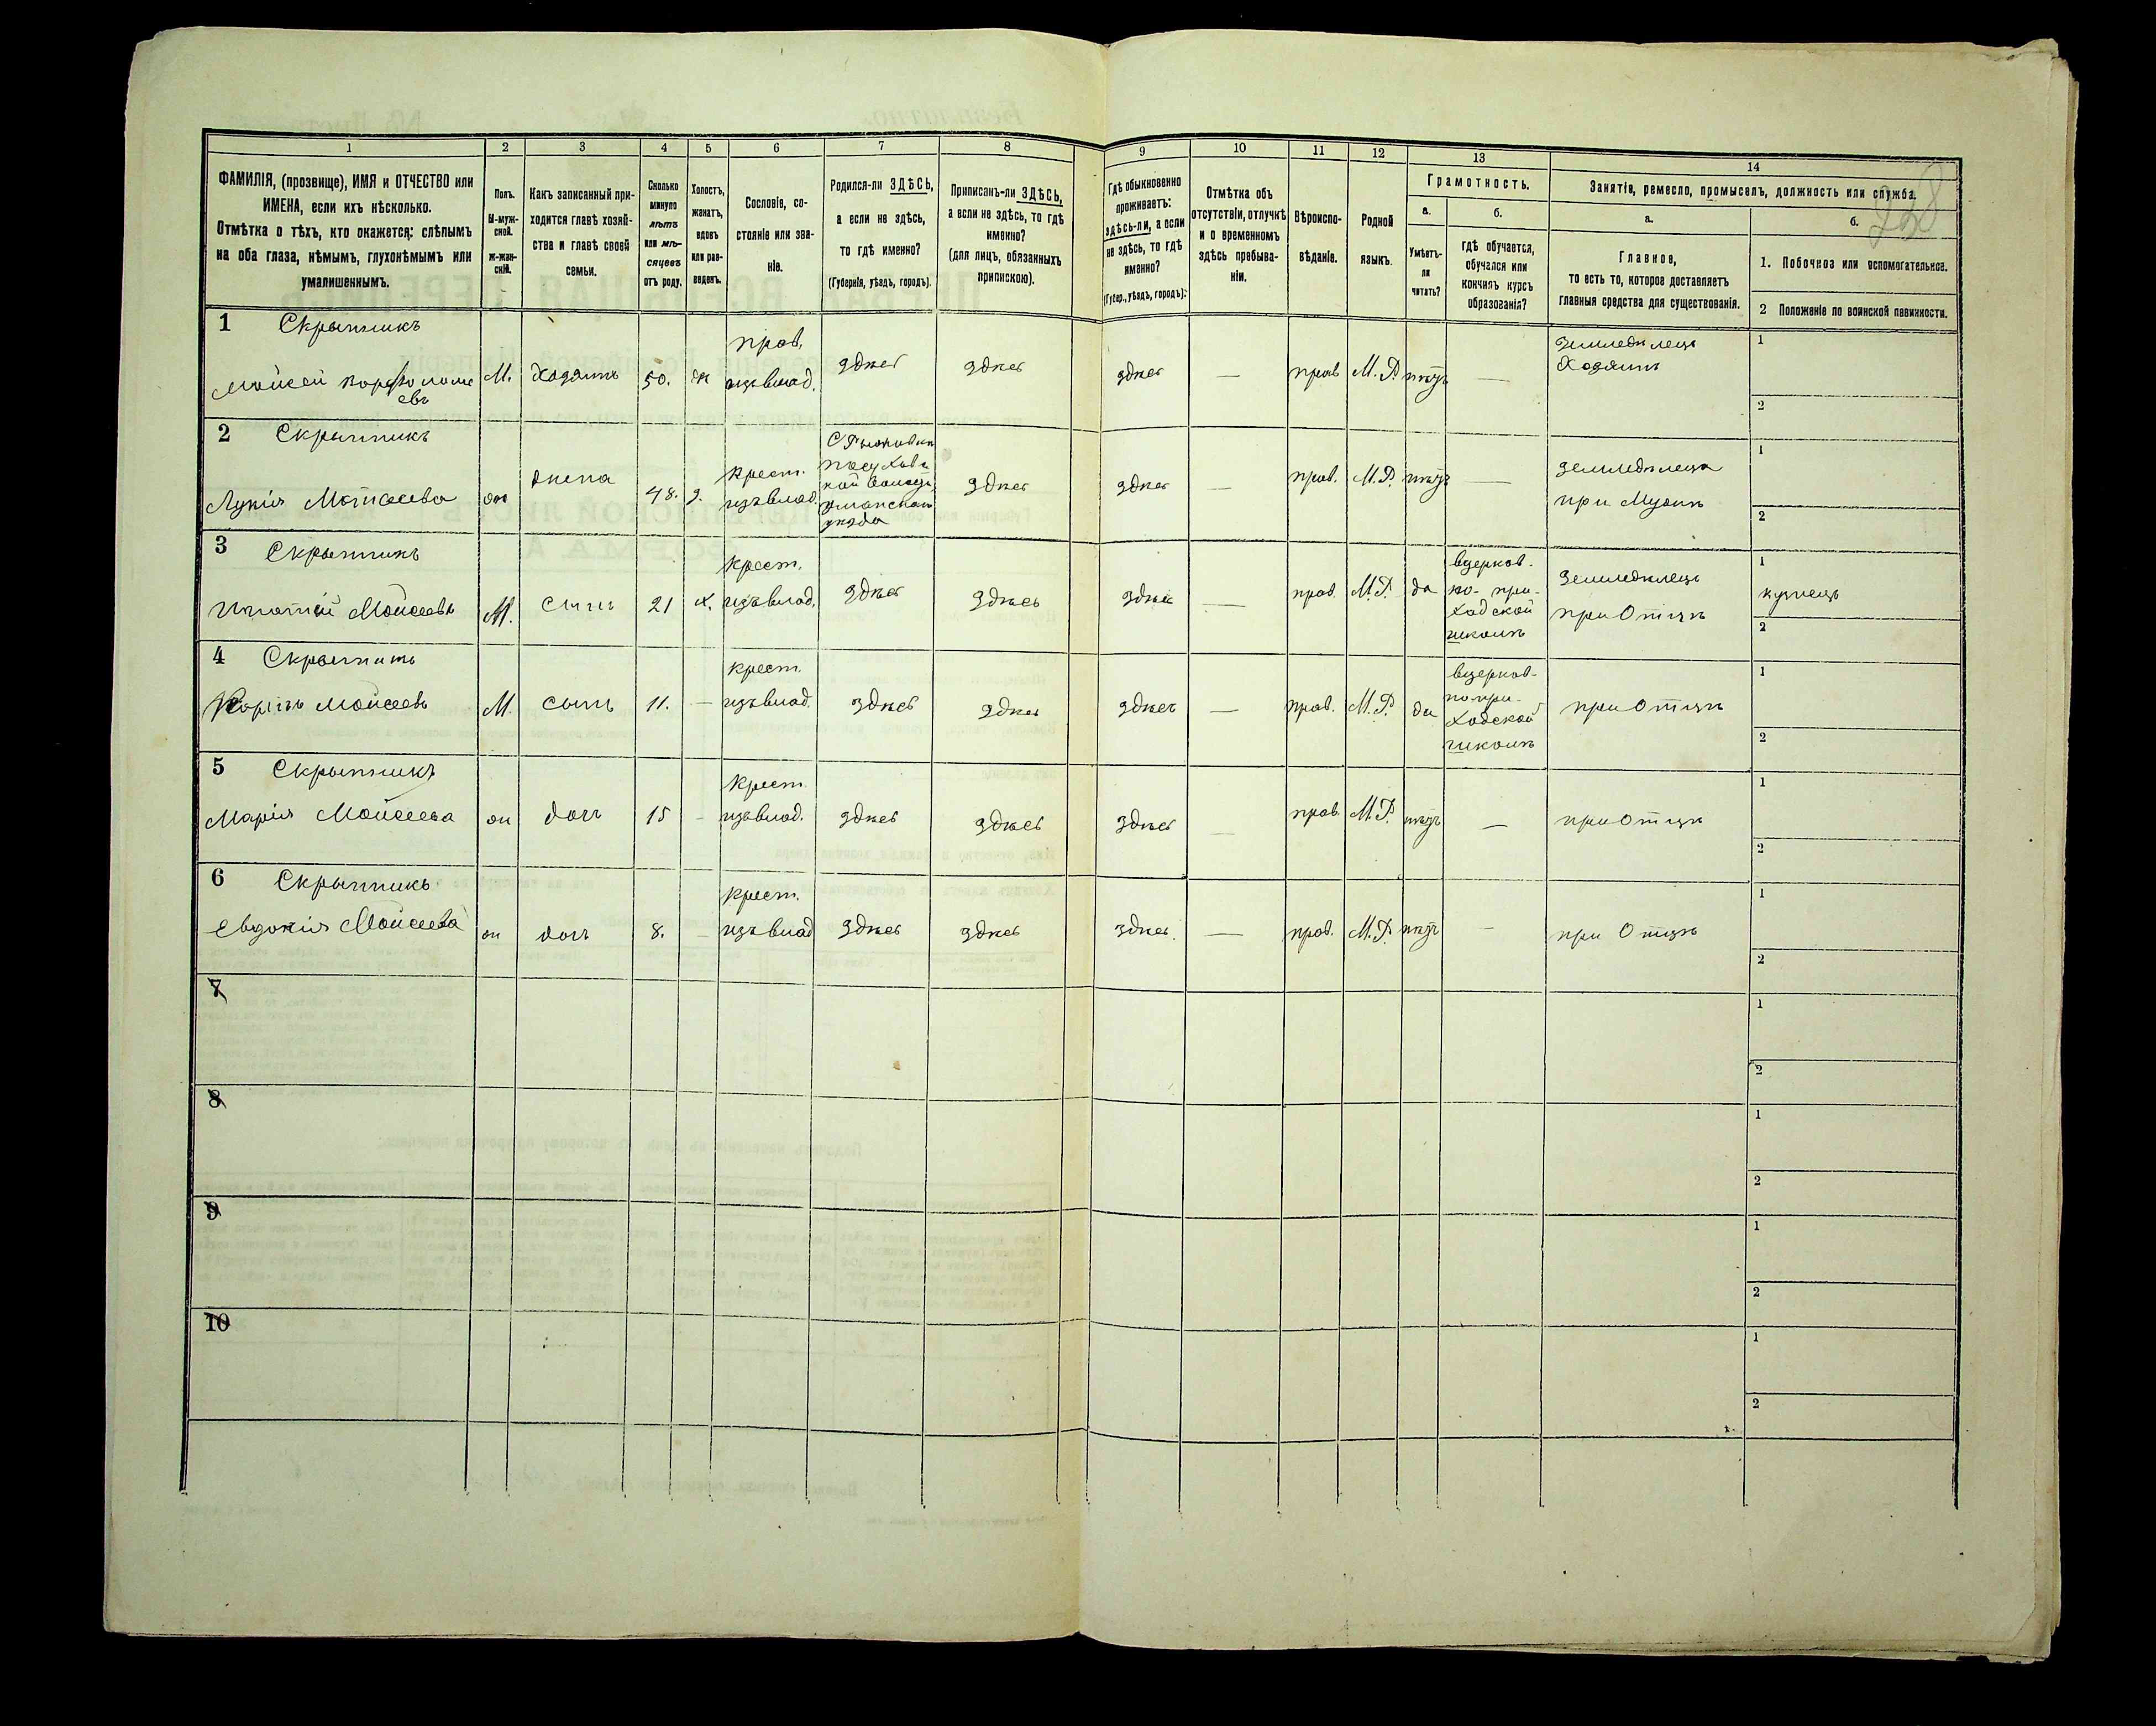 1 2 3 4 5 6 7 8 9 10 11 12 13 14
ФАМИЛІЯ, (прозвище), ИМЯ и ОТЧЕСТВО или
ИМЕНА, если ихъ нѣсколько.
Отмѣтка о тѣхъ, кто окажется: слѣпымъ
на оба глаза, нѣмымъ, глухонѣмымъ или
умалишеннымъ.
Полъ.
М-муж-
ской.
Ж-жен-
скій.
Какъ записанный при-
ходится главѣ хозяй-
ства и главѣ своей
семьи.
Сколько
минуло
лѣтъ
или мѣ-
сяцевъ
отъ роду.
Холостъ,
женатъ,
вдовъ
или раз-
веденъ.
Сословіе, со-
стояніе или зва-
ніе.
Родился-ли ЗДѢСЬ,
а если не здѣсь,
то гдѣ именно?
(Губернія, уѣздъ, городъ).
Приписанъ-ли ЗДѢСЬ,
а если не здѣсь, то гдѣ
именно?
(для лицъ, обязанныхъ
припискою).
Гдѣ обыкновенно
проживаетъ:
здѣсь-ли, а если
не здѣсь, то гдѣ
именно?
(Губер., уѣздъ, городъ).
Отмѣтка объ
отсутствіи, отлучкѣ
и о временномъ
здѣсь пребыва-
ніи.
Вѣроиспо-
вѣданіе.
Родной
языкъ.
Грамотность.
а.
Умѣетъ-
ли
читать?
б.
гдѣ обучается,
обучался или
кончилъ курсъ
образованія?
Занятіе, ремесло, промыселъ, должность или служба.
а.
Главное,
то есть то, которое доставляетъ
главныя средства для существованія.
б.
1. Побочное или вспомогательное.
2 Положеніе по воинской повинности.
238
1 Скрыпникъ
Мойсей
евъ
М. Хозяинъ 50. ж
изъ влад.
здѣсь здѣсь здѣсь — прав М. Р. нѣтъ —
Земледѣлецъ
Хозяинъ
1
2
2 Скрыпникъ
Лукія
жена 48. з.
крест.
изъ влад.
уманскаго
уѣзда
здѣсь здѣсь — прав. М. Р. нѣтъ —
земледѣлеца
при Мужѣ
1
2
3 Скрыпникъ
Игнатій Мойсеевъ
М. сынъ 21 х.
крест.
изъ влад.
здѣсь здѣсь здѣсь — прав. М. Р. да
вцерков-
но-при-
ходской
школѣ
Земледѣлецъ
при Отцѣ
1
кузнецъ
2
4
Мойсеевъ
М. сынъ 11. —
крест.
изъ влад.
здѣсь здѣсь здѣсь — прав. М. Р. да
вцерков-
но при-
ходской
школѣ
при Отцѣ
1
2
5 Скрыпникъ
Марія Мойсеева
доч 15 —
крест.
изъ влад.
здѣсь здѣсь здѣсь — прав. М. Р. нѣтъ —
при Отцѣ
1
2
6 Скрыпникъ
Евдокія Мойсеева
доч 8. —
крест.
изъ влад
здѣсь здѣсь здѣсь. — прав. М. Р. нѣтъ —
при Отцѣ
1
2
7
1
2
8
1
2
9
1
2
10
1
2